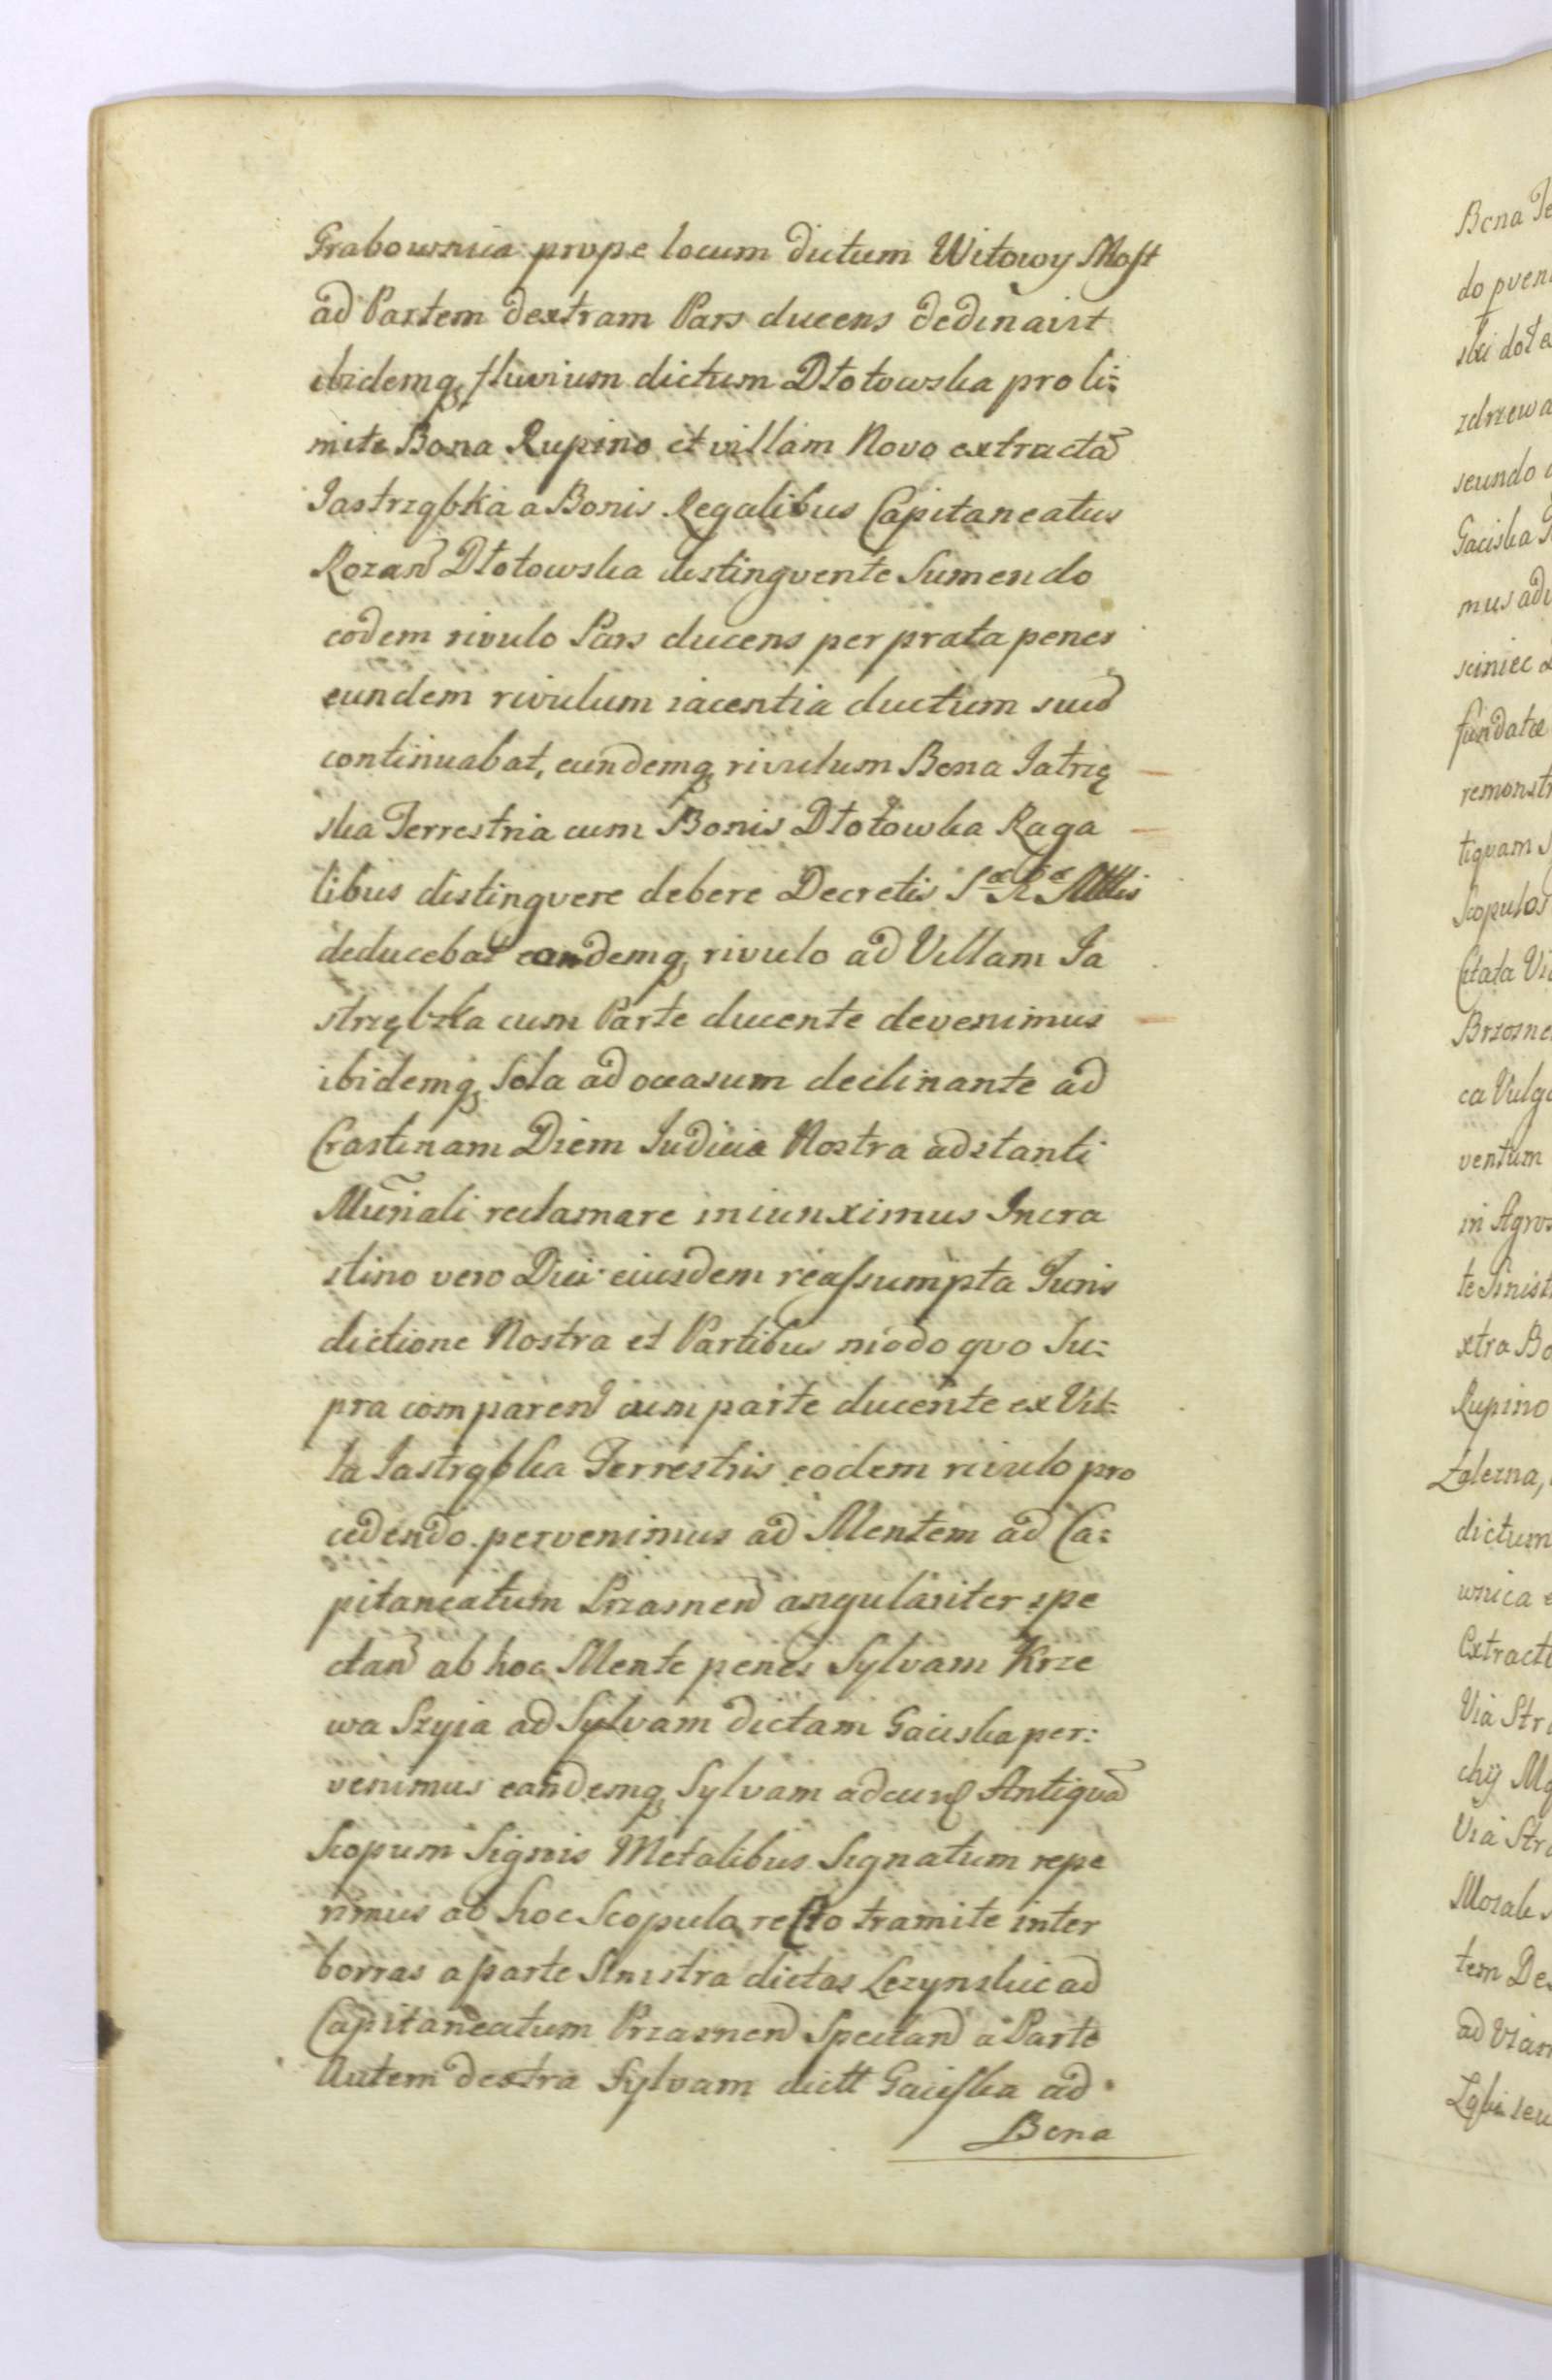 Grabownica prope locum dictum Witowy Most
ad Partem dextram Pars ducens declinavit
ibidemq fluvium dictum Dłotowska pro li=
mite Bona Rupino et villam Novo extractã
Jastrząbka a Bonis Regalibus Capitaneatus
Rozan Dłotowska distingvente Sumendo
eodem rivulo Pars ducens per prata penes
eundem rivulum iacentia ductum suũ
continuabat, eundemq rivulum Bona Jatrzę
ska Terrestria cum Bonis Dłotowka Raga
libus distingvere debere Decretis Sæ Ræ Mttis
deducebat eandemq rivulo ad Villam Ja
strzębzka cum Parte ducente devenimus
ibidemq Sola ad occasum declinante ad
Crastinam Diem Judicia Nostra adstanti
Muñiali reclamare iniunximus Incra
stino vero Diei eiusdem reassumpta Juris
dictione Nostra et Partibus modo quo Su=
pra comparen cum parte ducente ex Vil=
la Jastrąbka Terrestris eodem rivulo pro
cedendo pervenimus ad Mentem ad Ca=
pitaneatum Przasnen angulariter spe
ctan ab hoc Mente penes Sylvam Krze
wa Szyia ad Sylvam dictam Gaciska per=
venimus eandemq Sylvam Antiquã
Scopum Signis Metalibus Signatum repe
rimus ab hoc Scopulo recto tramite inter
borras a parte Sinistra dictas Lezynskie ad
Capitaneatum Przasnen Spectan a Parte
Autem dextra Sylvam dictt Gaciska ad
Bona
Bona Te
do pven
ski dot a
zdrzewa
seundo
Gaciska
mus adv
sciniec
fundatæ
remonstr
tiquam S
Scopulos
Citata Vi
Brzozne
ca Vulg
ventum
in Agros
te Sinist
xtra Bo
Rupino
Zalezna,
dictum
wnica e
Extract
Via Str
chy Mą
Via Str
Mozale
tem De
ad Viam